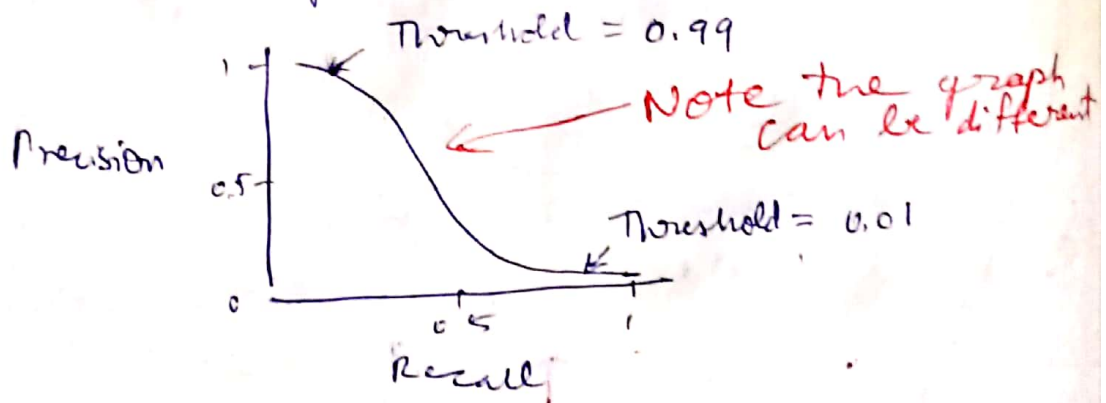 Threshold = 0.99
1
Note the graph
can be different
Precision
0.5
Threshold = 0.01
0
0.5
1
Recall